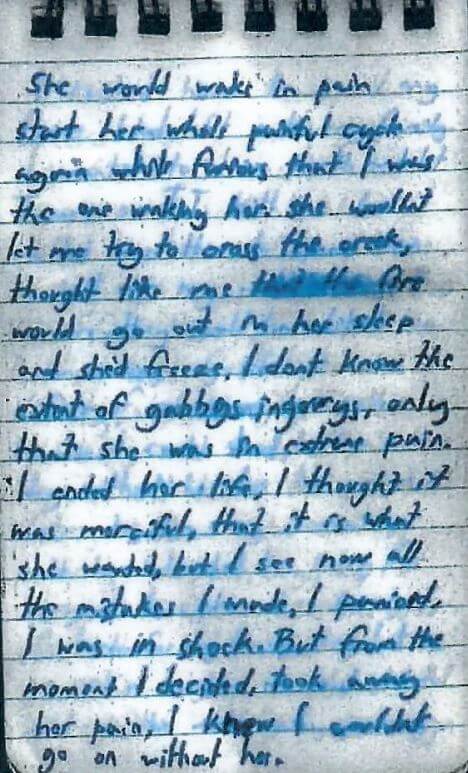 She would wake in pain
start her whole painful cycle
again while furious that I was
the one waking her. she wouldnt
let me try to cross the creek,
thought like me that the fire
would go out in her sleep
and she'd freeze, I dont know the
extent of gabbys injurys, only
that she was in extreme pain.
I ended her life, I thought it
was merciful, that it is what
she wanted, but I see now all
the mistakes I made, I panicked,
I was in shock. But from the
moment I decided, took away
her pain, I knew I wouldnt
go on without her.